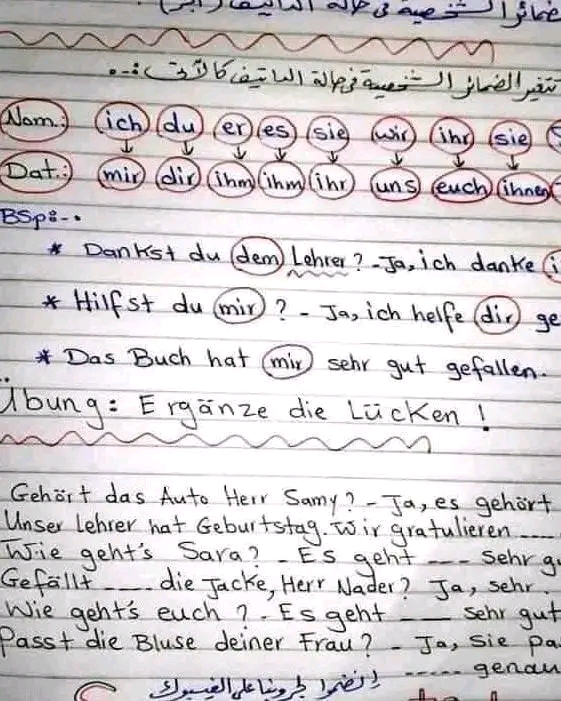 الضمائر الشخصية في حالة الداتيف
تتغير الضمائر الشخصية في حالة الداتيف كالآتى :-
Nom.: ich du er es sie wir ihr sie
Dat.: mir dir ihm ihm ihr uns euch ihnen
BSp:-
* Dankst du dem Lehrer? - Ja, ich danke i
* Hilfst du mir ? - Ja, ich helfe dir ge
* Das Buch hat mir sehr gut gefallen.
Übung: Ergänze die Lücken !
Gehört das Auto Herr Samy? - Ja, es gehört
Unser Lehrer hat Geburtstag. Wir gratulieren ----
Wie geht's Sara? - Es geht --- sehr gu
Gefällt ---- die Jacke, Herr Nader? Ja, sehr.
Wie geht's euch ? - Es geht ---- sehr gut
Passt die Bluse deiner Frau? - Ja, sie pa
----- genau
إنضموا لجروبنا على الفيسبوك